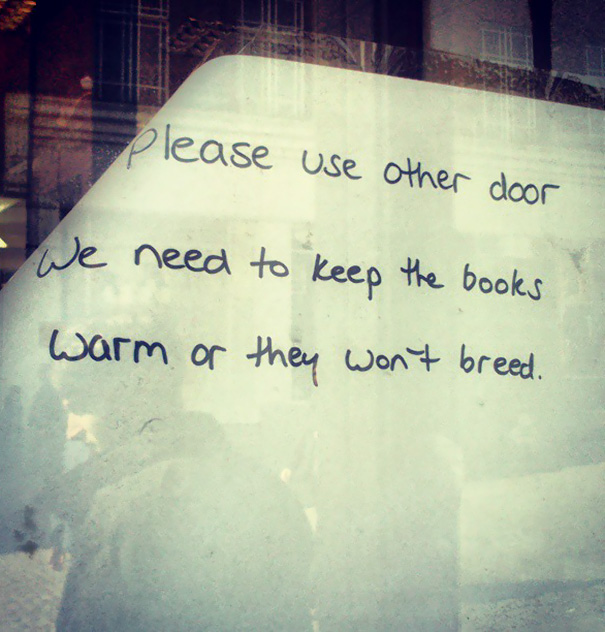 Please use other door
We need to keep the books
warm or they won't breed.